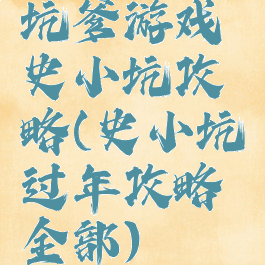 坑爹游戏
史小坑攻
略(史小坑
过年攻略
全部)